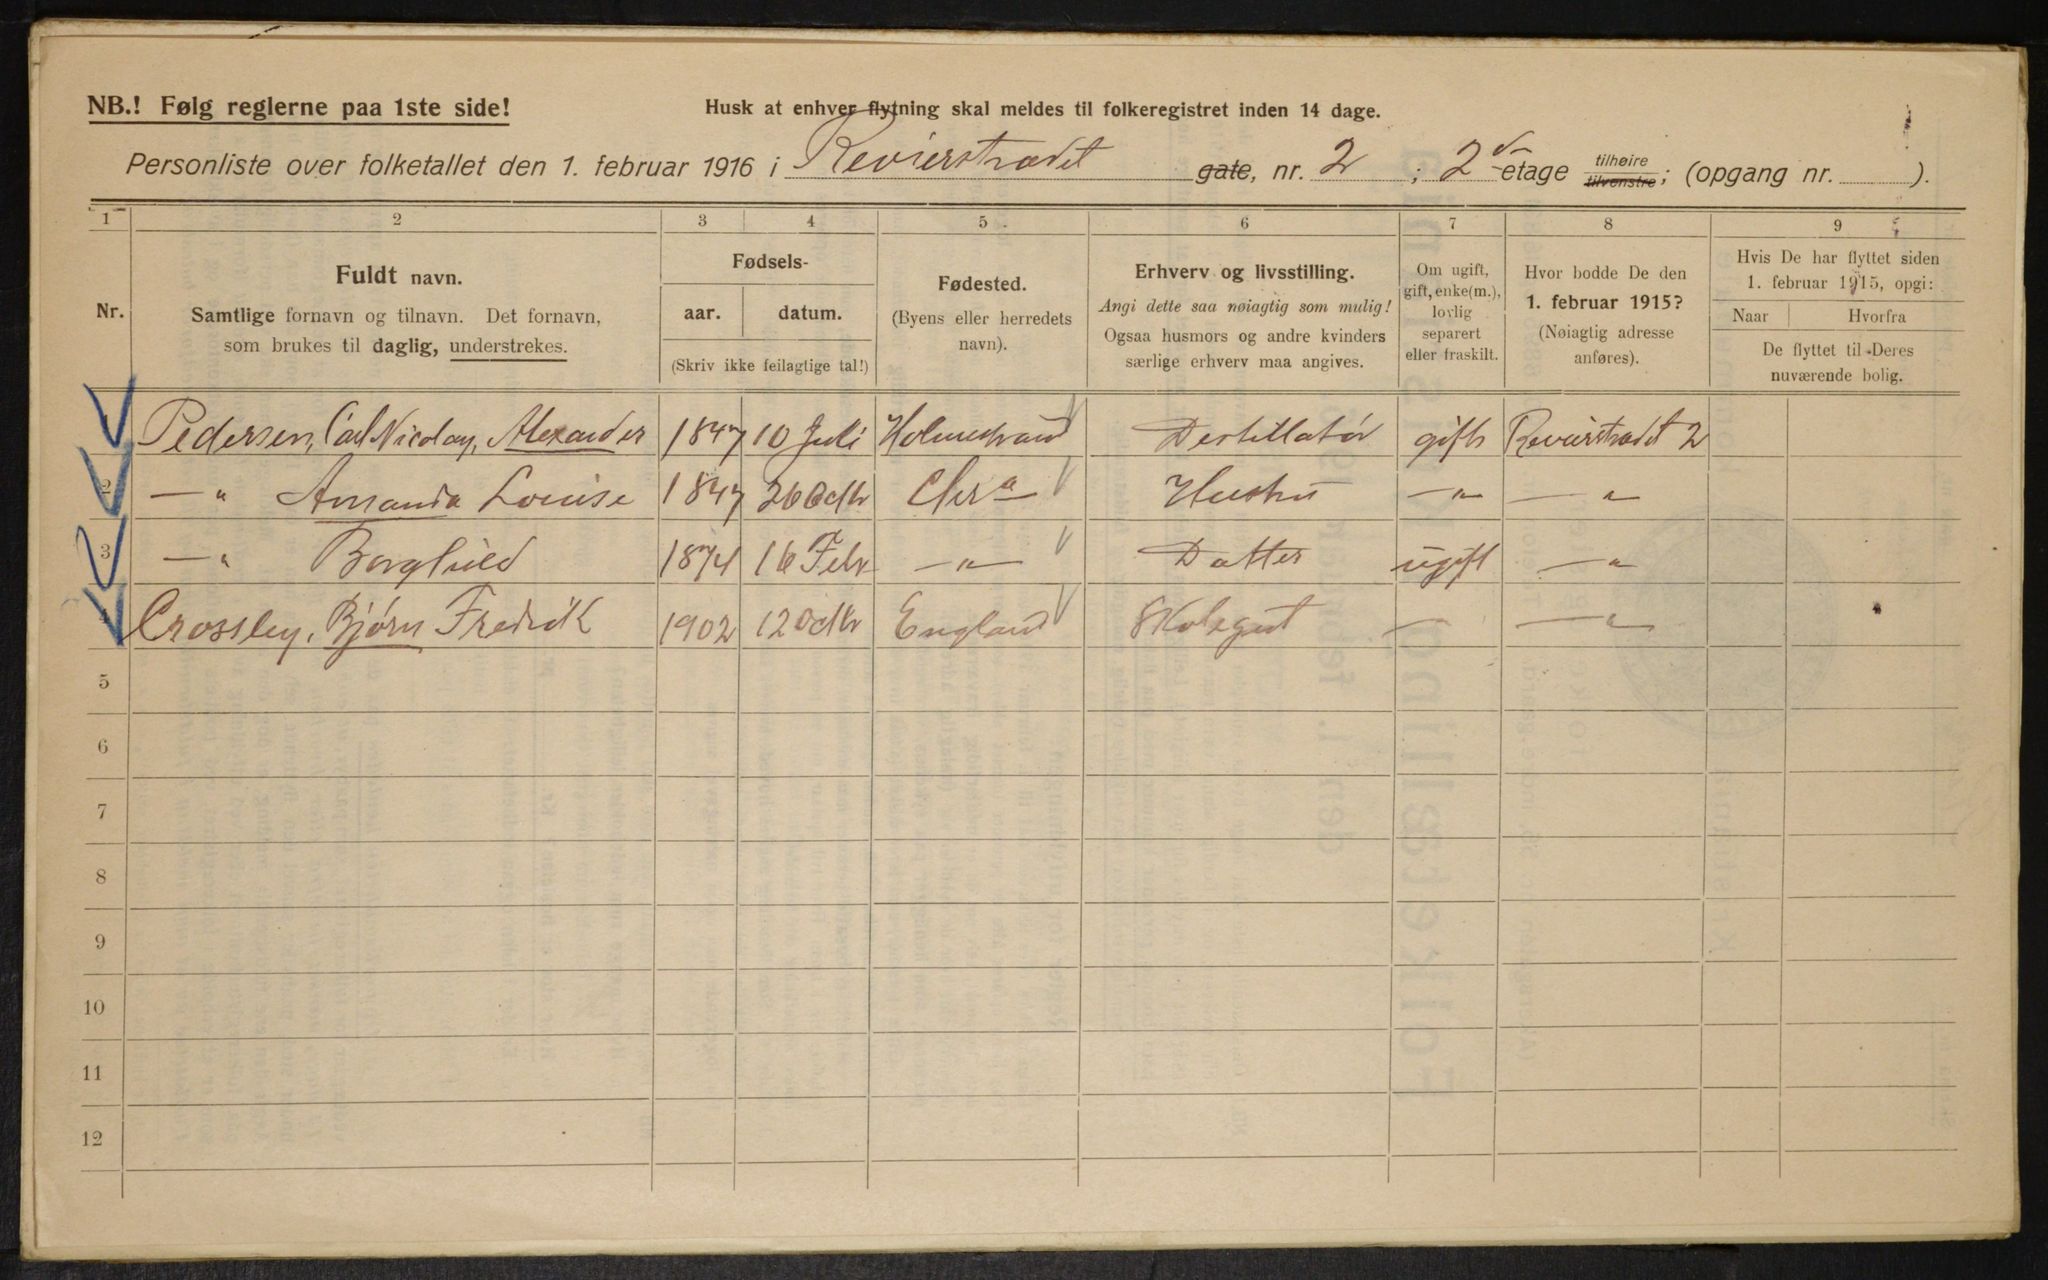 NB.! Følg reglerne paa 1ste side!
Husk at enhver flytning skal meldes til folkeregistret inden 14 dage.
Personliste over folketallet den 1. februar 1916 i Revierstrædet gate, nr. 2 ; 2 etage tilhøire tilvenstre; (opgang nr. ).
1 2 3 4 5 6 7 8 9
Nr.
Fuldt navn.
Samtlige fornavn og tilnavn. Det fornavn,
som brukes til daglig, understrekes.
Fødsels-
aar. datum.
(Skriv ikke feilagtige tal!)
Fødested.
(Byens eller herredets
navn).
Erhverv og livsstilling.
Angi dette saa nøiagtig som mulig!
Ogsaa husmors og andre kvinders
særlige erhverv maa angives.
Om ugift,
gift, enke(m.),
lovlig
separert
eller fraskilt.
Hvor bodde De den
1. februar 1915?
(Nøiagtig adresse
anføres).
Hvis De har flyttet siden
1. februar 1915, opgi:
Naar Hvorfra
De flyttet til Deres
nuværende bolig.
1 Pedersen, Carl Nicolay, Alexander 1847 10 Juli Holmestrand Destillatør gift Revierstrædet 2
2 — " Amanda Louise 1847 26 Oktr Chra Hustru — " — "
3 — " Borghild 1874 16 Febr — " Datter ugift — "
4 Crossley, Bjørn Fredrik 1902 12 Oktr England Skolegut — — "
5
6
7
8
9
10
11
12